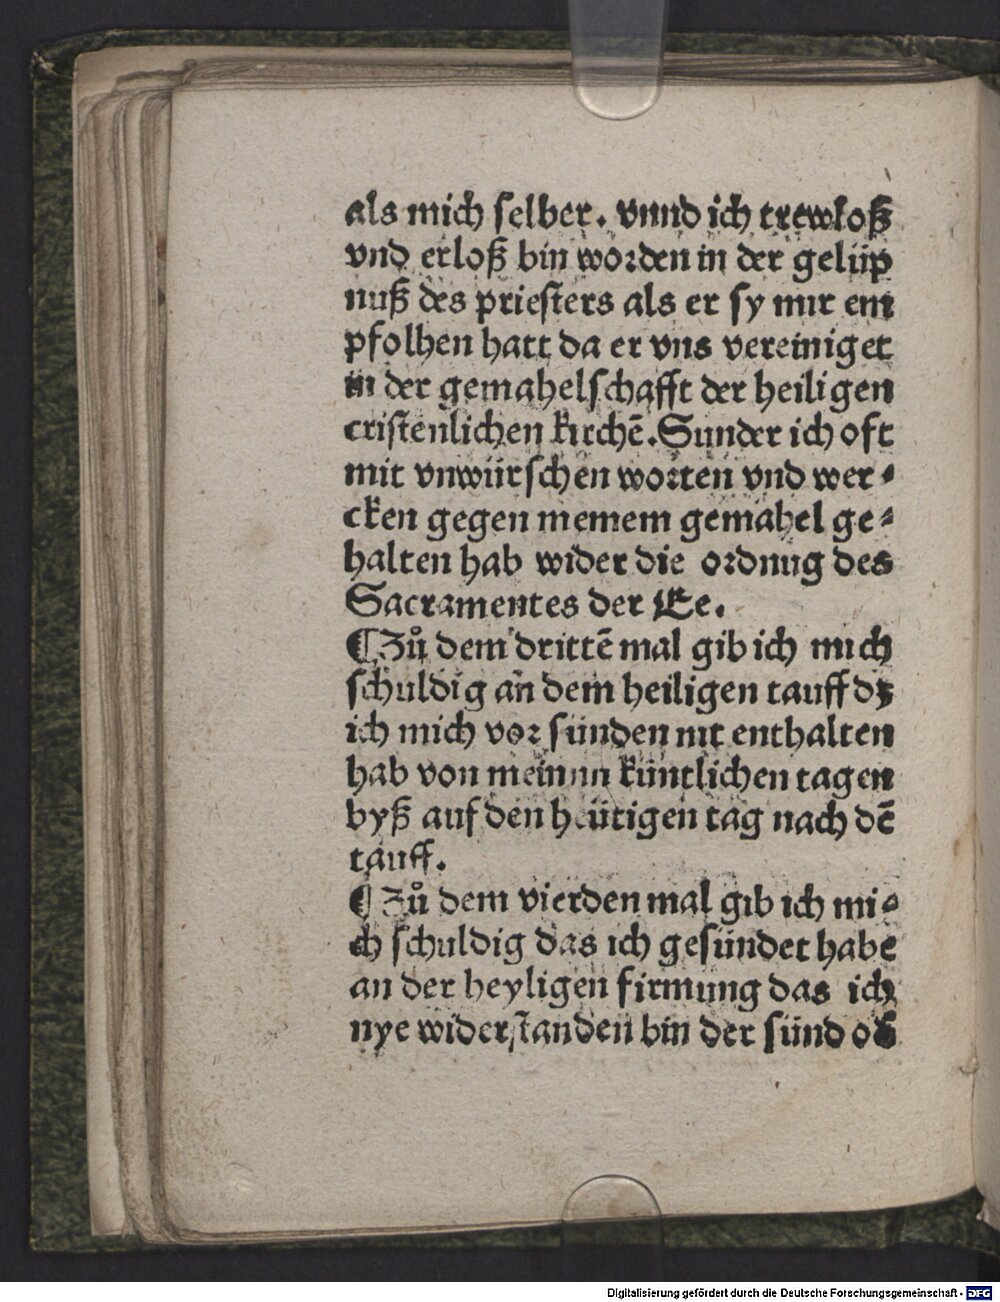 als mich selber. vnnd ich trewloß
vnd erloß bin worden in der gelüp
nuß des priesters als er sy mir em
pfolhen hatt da er vns vereiniget
in der gemahelschafft der heiligen
cristenlichen kirchē. Sunder ich oft
mit vnwürschen worten vnd wer⸗
cken gegen meinem gemahel ge⸗
halten hab wider die ordnug des
Sacramentes der Ee.
¶ Zů dem drittē mal gib ich mich
schuldig an dem heiligen tauff dz
ich mich vor sünden nit enthalten
hab von meinen küntlichen tagen
byß auf den heütigen tag nach dē
tauff.
¶ Zů dem vierden mal gib ich mi⸗
ch schuldig das ich gesündet habe
an der heyligen firmung das ich
nye widerstanden bin der sünd ob
Digitalisierung gefördert durch die Deutsche Forschungsgemeinschaft - DFG